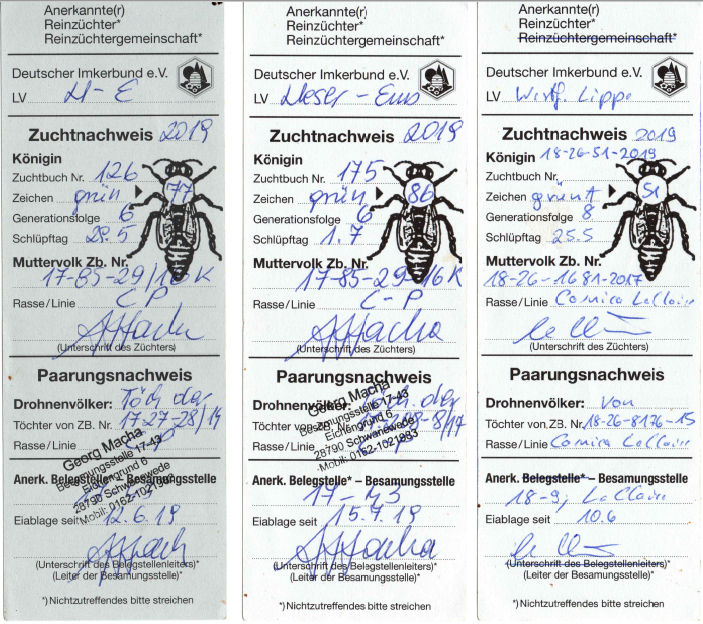 Anerkannte(r)
Reinzüchter*
Reinzüchtergemeinschaft*
Deutscher Imkerbund e.V.
LV W-E
Zuchtnachweis 2019
Königin
Zuchtbuch Nr. 126
Zeichen grün 77
Generationsfolge 6
Schlüpftag 29.5
Muttervolk Zb. Nr.
17-85-29/16 K
Rasse/Linie C P
(Unterschrift des Züchters)
Paarungsnachweis
Drohnenvölker: Töch der
Töchter von ZB. Nr. 17-27-28/14
Rasse/Linie
Georg Macha
Besamungsstelle 17-43
Eichengrund 6
28790 Schwanewede
Mobil: 0162-1021983
Anerk. Belegstelle* – Besamungsstelle
Eiablage seit 12.6.19
(Unterschrift des Belegstellenleiters)*
(Leiter der Besamungsstelle)*
*) Nichtzutreffendes bitte streichen
Anerkannte(r)
Reinzüchter*
Reinzüchtergemeinschaft*
Deutscher Imkerbund e.V.
LV Weser-Ems
Zuchtnachweis 2019
Königin
Zuchtbuch Nr. 175
Zeichen grün 86
Generationsfolge 6
Schlüpftag 1.7
Muttervolk Zb. Nr.
17-85-29-16 K
Rasse/Linie C-P
(Unterschrift des Züchters)
Paarungsnachweis
Drohnenvölker: der
Töchter von Zb. Nr.
Rasse/Linie
Georg Macha
Besamungsstelle 17-43
Eichengrund 6
28790 Schwanewede
Mobil: 0162-1021983
Anerk. Belegstelle* – Besamungsstelle
17-43
Eiablage seit 15.7.19
(Unterschrift des Belegstellenleiters)*
(Leiter der Besamungsstelle)*
*) Nichtzutreffendes bitte streichen
Anerkannte(r)
Reinzüchter*
Reinzüchtergemeinschaft*
Deutscher Imkerbund e.V.
LV Westf. Lippe
Zuchtnachweis 2019
Königin 18-26-51-2019
Zuchtbuch Nr.
Zeichen 51
Generationsfolge 8
Schlüpftag 25.5
Muttervolk Zb. Nr.
18-26-1681-2017
Rasse/Linie Carnica LeClaire
(Unterschrift des Züchters)
Paarungsnachweis
Drohnenvölker: von
Töchter von ZB. Nr. 18-26-8176-15
Rasse/Linie Carnica LeClaire
Anerk. Belegstelle* – Besamungsstelle
18-9, LeClaire
Eiablage seit 10.6
(Unterschrift des Belegstellenleiters)*
(Leiter der Besamungsstelle)*
*) Nichtzutreffendes bitte streichen